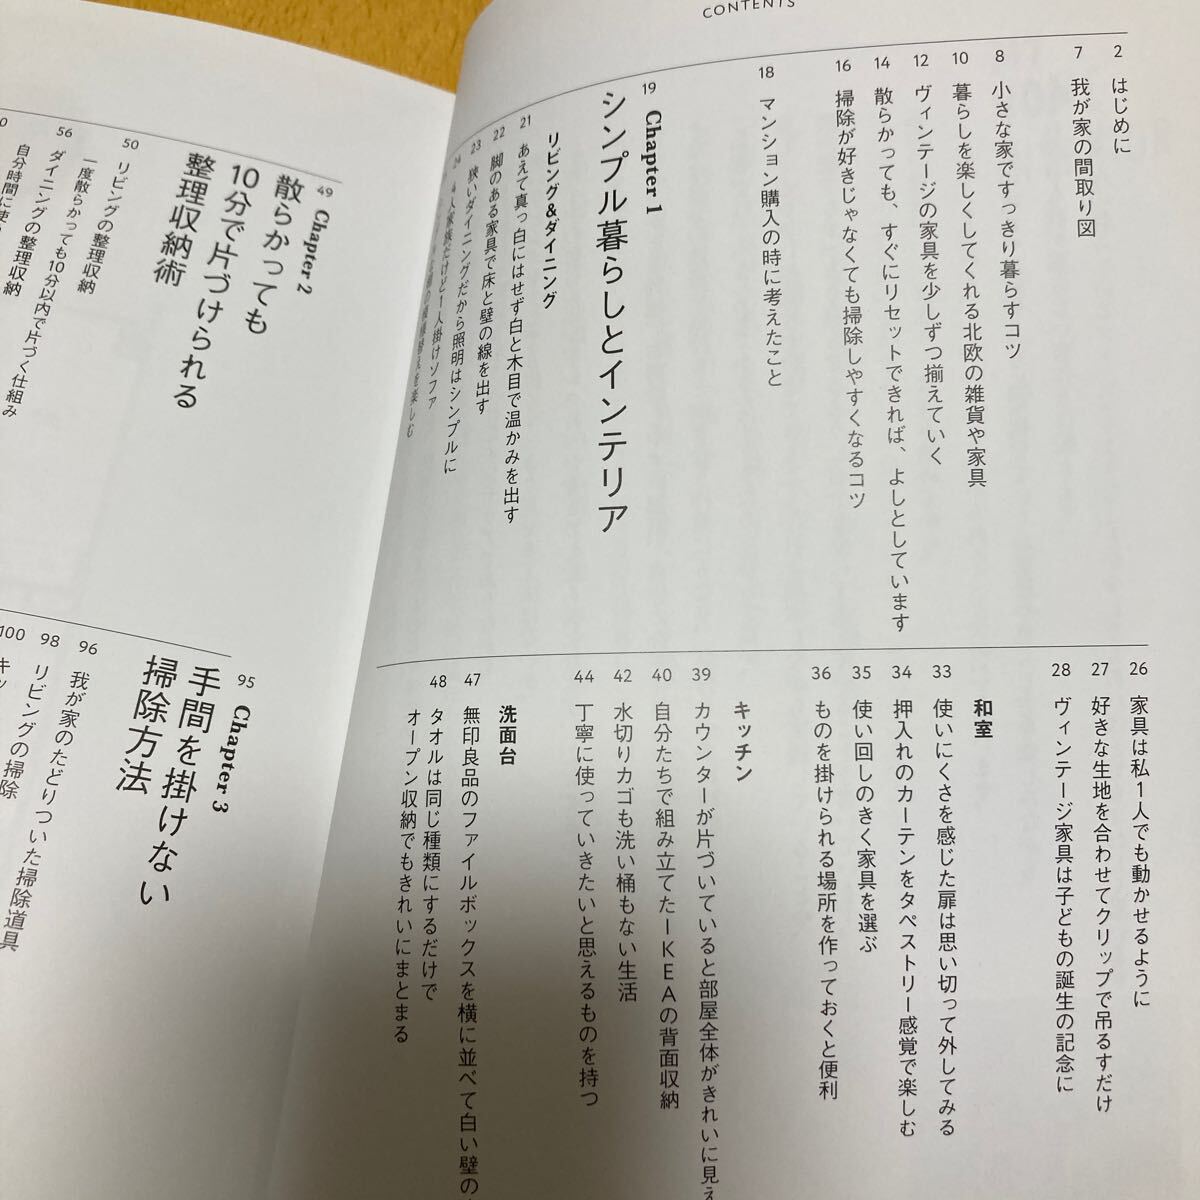 CONTENTS
2 はじめに
7 我が家の間取り図
8 小さな家ですっきり暮らすコツ
10 暮らしを楽しくしてくれる北欧の雑貨や家具
12 ヴィンテージの家具を少しずつ揃えていく
14 散らかっても、すぐにリセットできれば、よしとしています
16 掃除が好きじゃなくても掃除しやすくなるコツ
18 マンション購入の時に考えたこと
19 Chapter 1
シンプル暮らしとインテリア
リビング&ダイニング
21 あえて真っ白にはせず白と木目で温かみを出す
22 脚のある家具で床と壁の線を出す
23 狭いダイニングだから照明はシンプルに
24 4人家族だけど1人掛けソファ
模様替えを楽しむ
26 家具は私1人でも動かせるように
27 好きな生地を合わせてクリップで吊るすだけ
28 ヴィンテージ家具は子どもの誕生の記念に
和室
33 使いにくさを感じた扉は思い切って外してみる
34 押入れのカーテンをタペストリー感覚で楽しむ
35 使い回しのきく家具を選ぶ
36 ものを掛けられる場所を作っておくと便利
キッチン
39 カウンターが片づいていると部屋全体がきれいに見え
40 自分たちで組み立てたIKEAの背面収納
42 水切りカゴも洗い桶もない生活
44 丁寧に使っていきたいと思えるものを持つ
洗面台
47 無印良品のファイルボックスを横に並べて白い壁の
48 タオルは同じ種類にするだけで
オープン収納でもきれいにまとまる
49 Chapter 2
散らかっても
10分で片づけられる
整理収納術
50 リビングの整理収納
一度散らかっても10分以内で片づく仕組み
56 ダイニングの整理収納
自分時間に使
95 Chapter 3
手間を掛けない
掃除方法
96 我が家のたどりついた掃除道具
98 リビングの掃除
100 キッ